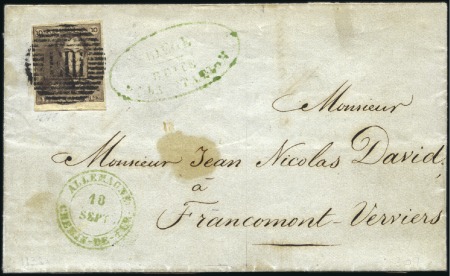 Monsieur
Monsieur Jean Nicolas David,
à
Francomont-Verviers
ALLEMAGNE
18
SEPT
CHEMIN-DE-FER